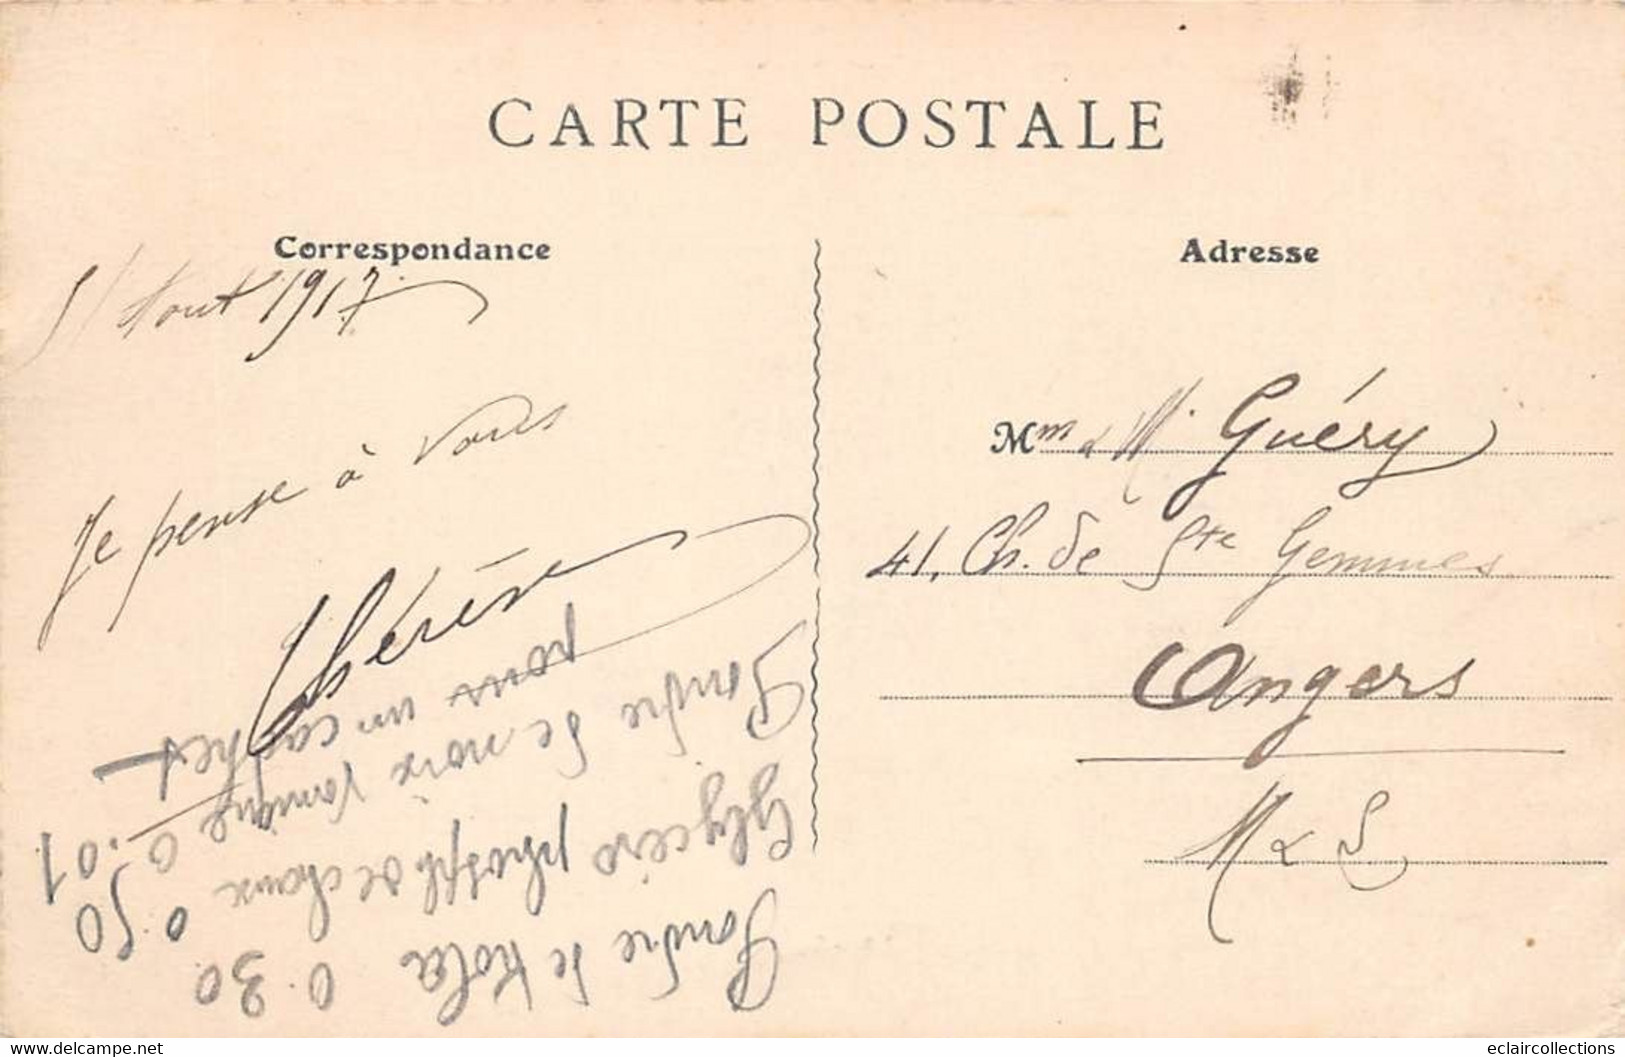 CARTE POSTALE
Correspondance
Adresse
5/ Aout 1917
Je pense à vous
Thérèse
Mme & M. Guéry
41, Ch. de Ste Gemmes
Angers
M & L
Poudre de Kola 0.30
Glycéro phosph de chaux 0.50
Poudre de noix vomique 0.01
pour un cachet
delcampe.net
eclaircollections